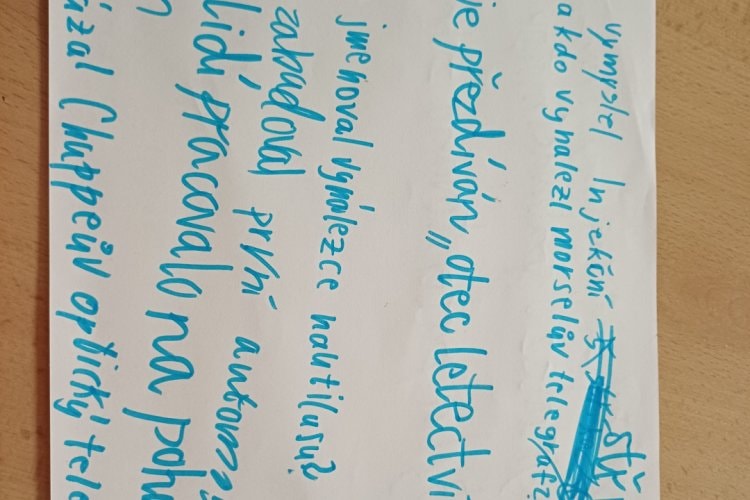 vymyslel Injekční stř
a kdo vynalezl morselův telegraf?
je přezdíván „otec letectví
jmenoval vynálezce nautilusu?
zabudoval první automo
lidí pracovalo na poh
ázal Chappeův optický tele